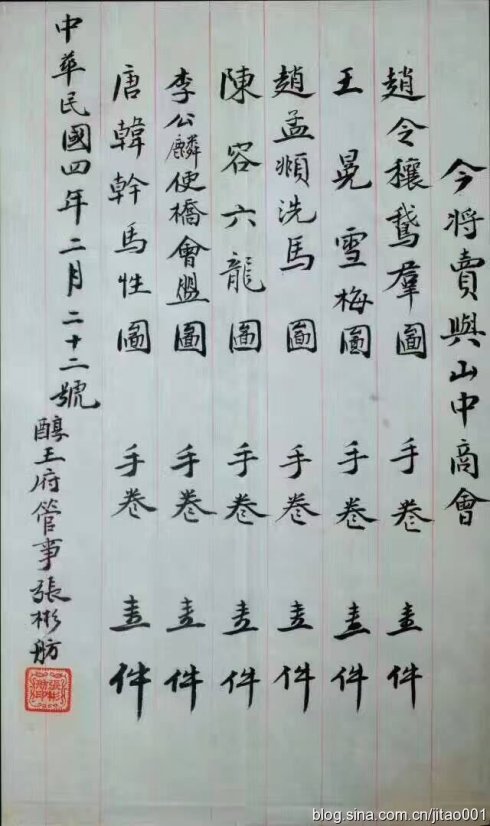 今將賣與山中商會
趙令穰鵝羣圖 手卷 壹件
王晃雪梅圖 手卷 壹件
趙孟頫洗馬圖 手卷 壹件
陳容六龍圖 手卷 壹件
李公麟便橋會盟圖 手卷 壹件
唐韓幹馬性圖 手卷 壹件
中華民國四年二月二十二號
醇王府管事張彬舫
blog.sina.com.cn/jitao001